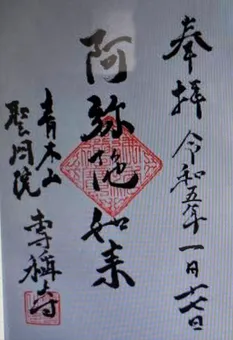 奉拝 令和五年一月廿七日
阿弥陀如来
青木山
聖同院
専称寺